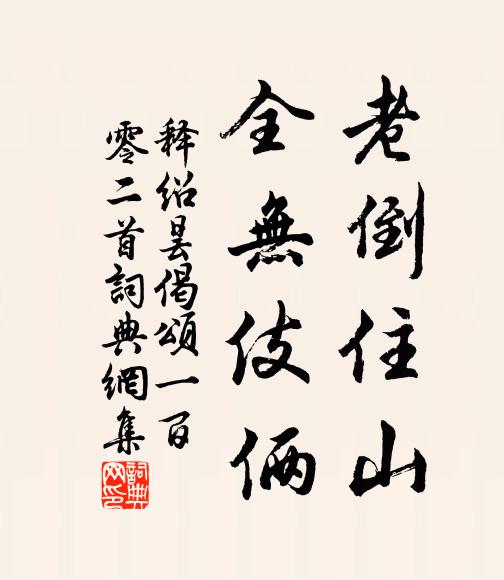 老倒住山
全無伎倆
释紹曇偈頌一百
零二首詞典網集
詞典網印